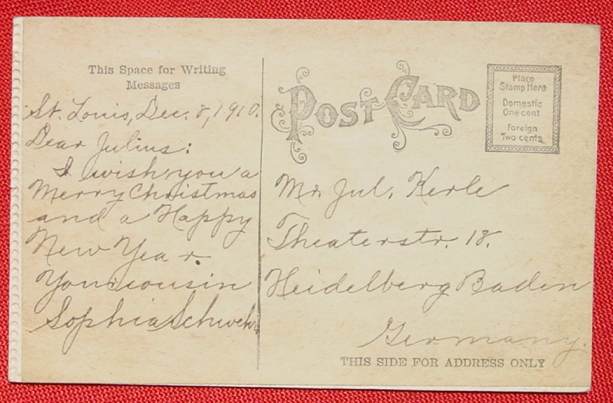 This Space for Writing
Messages
St. Louis, Dec. 8, 1910.
Dear Julius:
I wish you a
Merry Christmas
and a Happy
New Year.
Your cousin
Sophia
POST CARD
Place
Stamp Here
Domestic
One cent
Foreign
Two cents
Mr. Jul. Kerle
Theaterstr. 18.
Heidelberg Baden
Germany.
THIS SIDE FOR ADDRESS ONLY